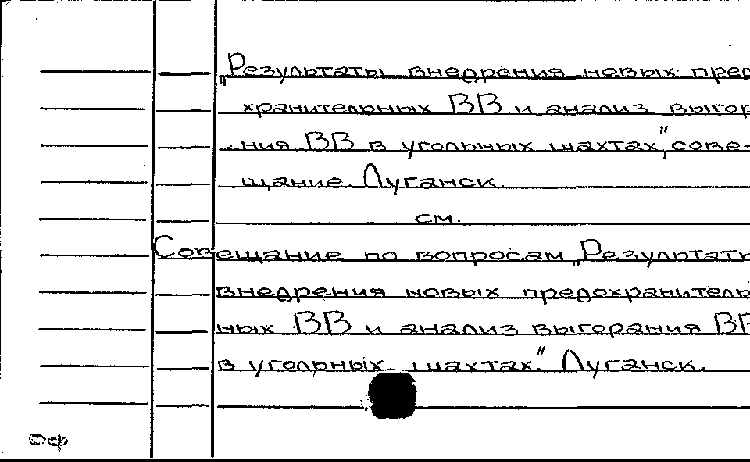 „Результаты внедрения новых пред
хранительных ВВ и анализ выгор
ния ВВ в угольных шахтах", сове-
щание. Луганск.
см.
Совещание по вопросам „Результаты
внедрения новых предохранитель
ных ВВ и анализ выгорания ВВ
в угольных шахтах". Луганск.